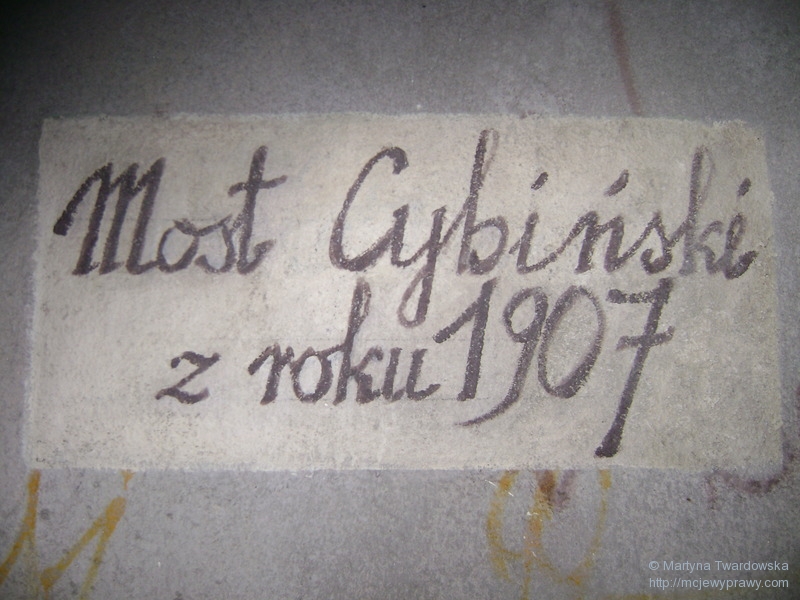 Most Cybiński
z roku 1907
© Martyna Twardowska
http://mcjewyprawy.com